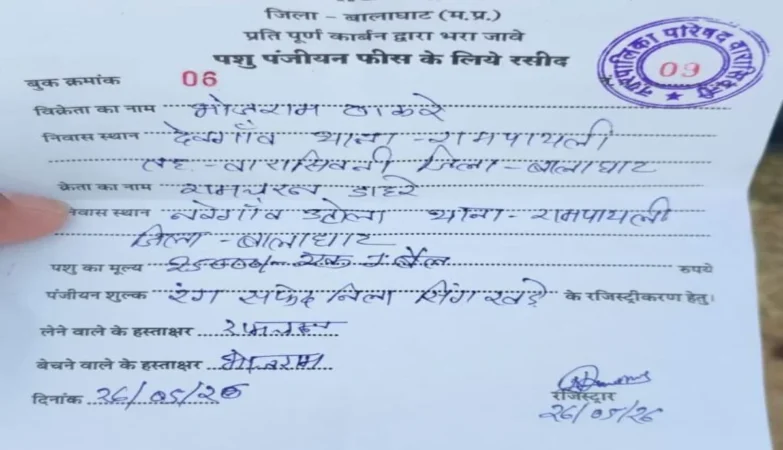 जिला - बालाघाट (म.प्र.)
प्रति पूर्ण कार्बन द्वारा भरा जावे
पशु पंजीयन फीस के लिये रसीद
नगरपालिका परिषद वारासिवनी
बुक क्रमांक 06 09
विक्रेता का नाम भोजराम ठाकरे
निवास स्थान देवगाँव थाना - रामपायली
तह - वारासिवनी जिला - बालाघाट
क्रेता का नाम रामचरन डाहरे
निवास स्थान नवेगाँव थाना - रामपायली
जिला - बालाघाट
पशु का मूल्य 25000/- एक बैल रुपये
पंजीयन शुल्क रंग सफेद निला सिंग खड़े के रजिस्ट्रीकरण हेतु।
लेने वाले के हस्ताक्षर
बेचने वाले के हस्ताक्षर भोजराम
दिनांक 26/05/26
रजिस्ट्रार
26/05/26